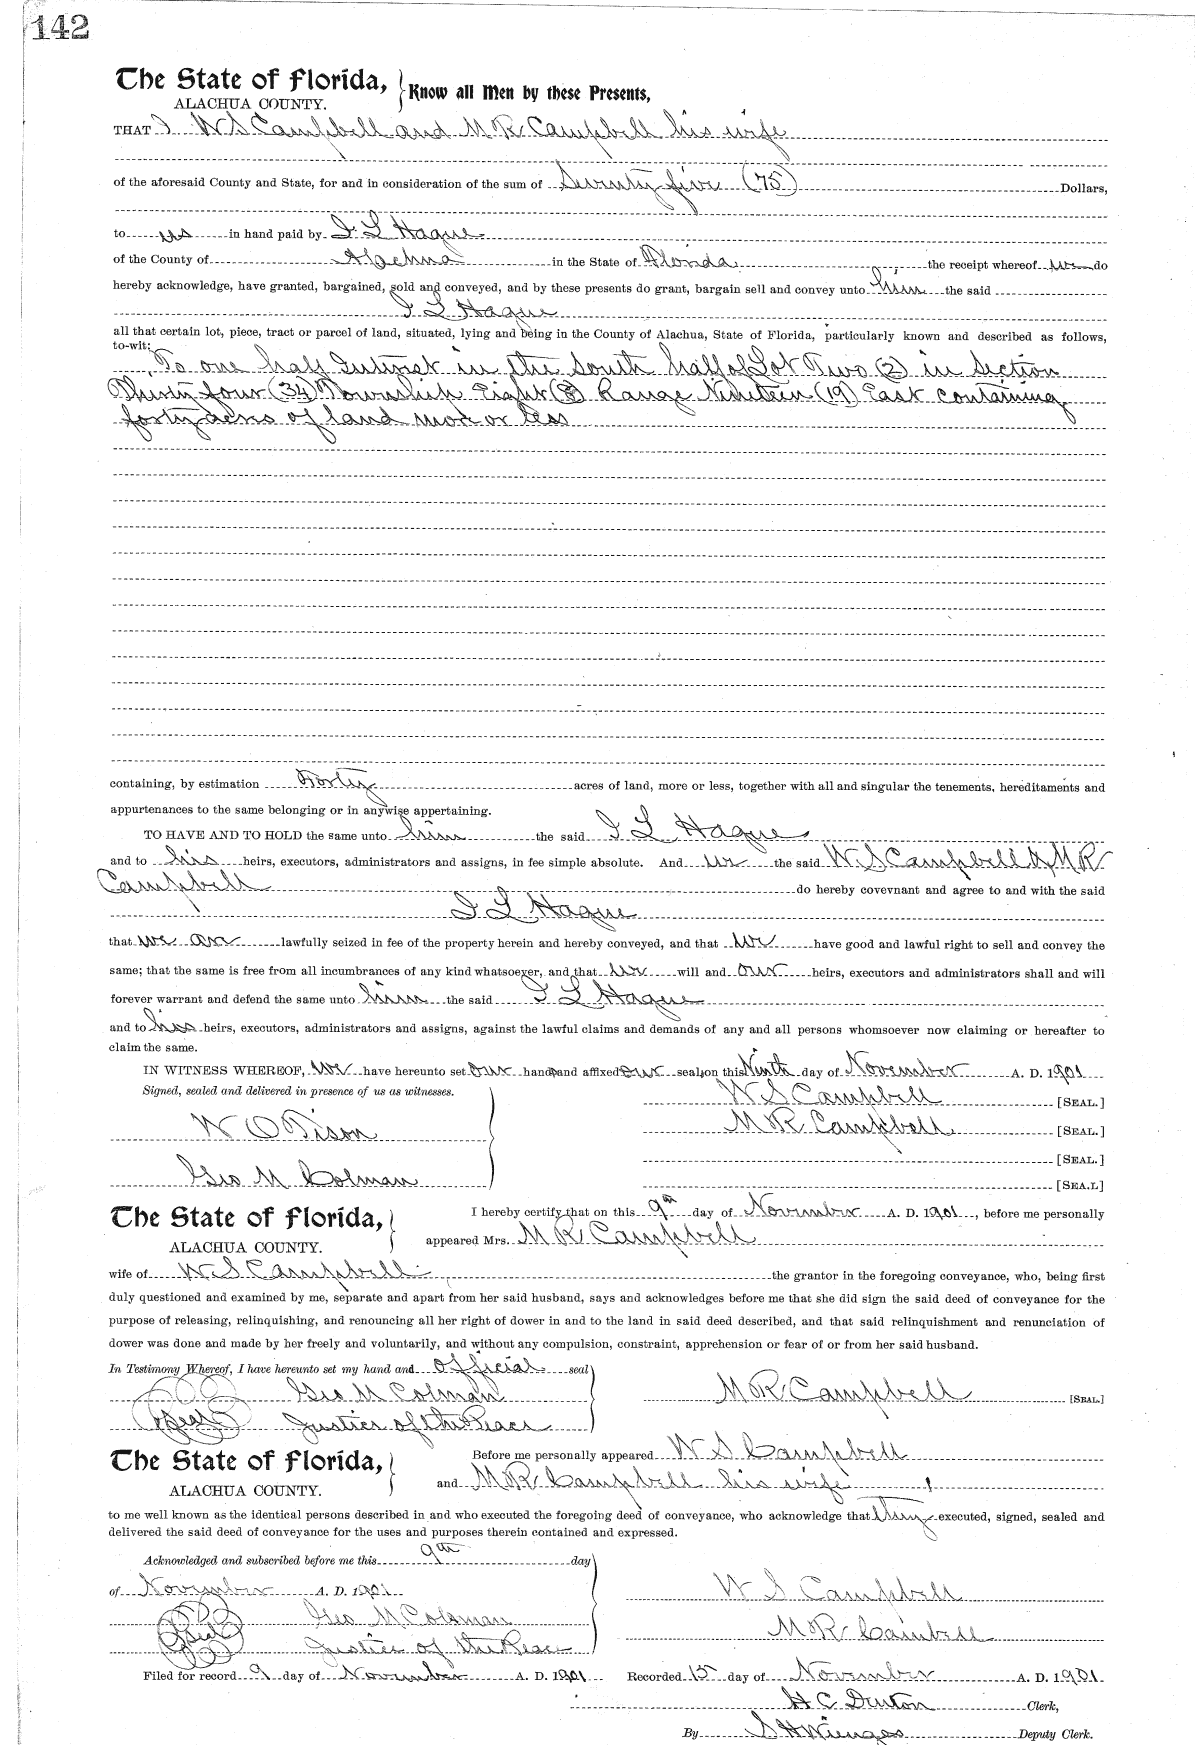 142
The State of Florida, Know all Men by these Presents,
ALACHUA COUNTY.
THAT I W S Campbell and M R Campbell his wife
of the aforesaid County and State, for and in consideration of the sum of Seventy five (75) Dollars,
to us in hand paid by I L Hague
of the County of Alachua in the State of Florida the receipt whereof we do
hereby acknowledge, have granted, bargained, sold and conveyed, and by these presents do grant, bargain sell and convey unto him the said
I L Hague
all that certain lot, piece, tract or parcel of land, situated, lying and being in the County of Alachua, State of Florida, particularly known and described as follows,
to-wit:
To one half Interest in the South half of Lot Two (2) in Section
Thirty four (34) Township Eight (8) Range Nineteen (19) East containing
forty acres of land more or less
containing, by estimation Forty acres of land, more or less, together with all and singular the tenements, hereditaments and
appurtenances to the same belonging or in anywise appertaining.
TO HAVE AND TO HOLD the same unto him the said I L Hague
and to his heirs, executors, administrators and assigns, in fee simple absolute. And we the said W. S Campbell & M R
Campbell do hereby covevnant and agree to and with the said
I L Hague
that we are lawfully seized in fee of the property herein and hereby conveyed, and that we have good and lawful right to sell and convey the
same; that the same is free from all incumbrances of any kind whatsoever, and that we will and our heirs, executors and administrators shall and will
forever warrant and defend the same unto him the said I L Hague
and to his heirs, executors, administrators and assigns, against the lawful claims and demands of any and all persons whomsoever now claiming or hereafter to
claim the same.
IN WITNESS WHEREOF, we have hereunto set our hands and affixed our seals on this Ninth day of November A. D. 1901
Signed, sealed and delivered in presence of us as witnesses. W S Campbell [SEAL.]
W O Tison M R Campbell [SEAL.]
[SEAL.]
Geo M Colman [SEA.L]
The State of Florida, I hereby certify that on this 9th day of November A. D. 1901, before me personally
ALACHUA COUNTY. appeared Mrs. M R Campbell
wife of W S Campbell the grantor in the foregoing conveyance, who, being first
duly questioned and examined by me, separate and apart from her said husband, says and acknowledges before me that she did sign the said deed of conveyance for the
purpose of releasing, relinquishing, and renouncing all her right of dower in and to the land in said deed described, and that said relinquishment and renunciation of
dower was done and made by her freely and voluntarily, and without any compulsion, constraint, apprehension or fear of or from her said husband.
In Testimony Whereof, I have hereunto set my hand and official seal
Geo M Colman M R Campbell [SEAL]
Seal Justice of the Peace
The State of Florida, Before me personally appeared W S Campbell
ALACHUA COUNTY. and M R Campbell his wife
to me well known as the identical persons described in and who executed the foregoing deed of conveyance, who acknowledge that they executed, signed, sealed and
delivered the said deed of conveyance for the uses and purposes therein contained and expressed.
Acknowledged and subscribed before me this 9th day
of November A. D. 1901 W S Campbell
Geo M Colsman
Seal Justice of the Peace M R Cambell
Filed for record 9 day of November A. D. 1901 Recorded 15 day of November A. D. 1901
H C Denton Clerk,
By S H Wienges Deputy Clerk.